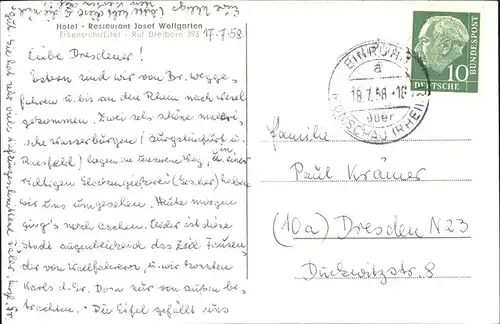 Hotel - Restaurant Josef Wollgarten
Erkensruhr/Eifel - Ruf Dreiborn 393
17.7.58.
Liebe Dresdener!
Gestern sind wir von Br. wegge-
fahren u. bis an den Rhein nach Wesel
gekommen. Zwei sehr schöne maleri-
sche Wasserburgen (Burgsteinfurt u.
Raesfeld) lagen an unserem Weg, u. in einer
richtigen Glockengießerei (Gescher) haben
wir uns umgesehen. Heute morgen
ging's nach Aachen. Leider ist diese
Stadt augenblicklich das Ziel Tausen-
der von Wallfahrern, u. wir konnten
Karls d. Gr. Dom nur von außen be-
trachten. - Die Eifel gefällt uns
DEUTSCHE BUNDESPOST
10
EINRUHR
a
18.7.58.-16
über
MONSCHAU (RHEINL)
Familie
Paul Krämer
(10a) Dresden N 23
Dückwitzstr. 8